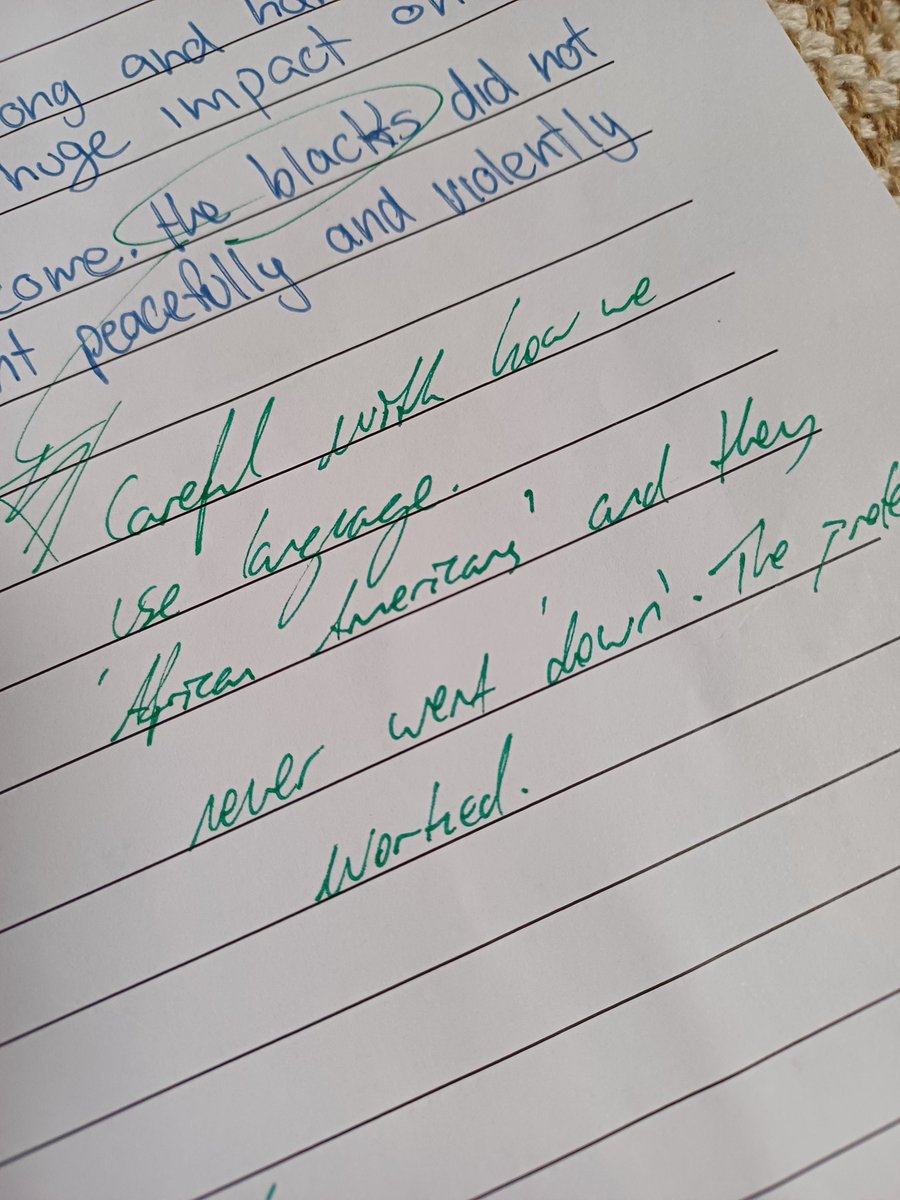 ong and
huge impact on
come. the blacks did not
nt peacefully and violently
Careful with how we
use language.
'African Americans' and they
never went 'down'. The prote
worked.